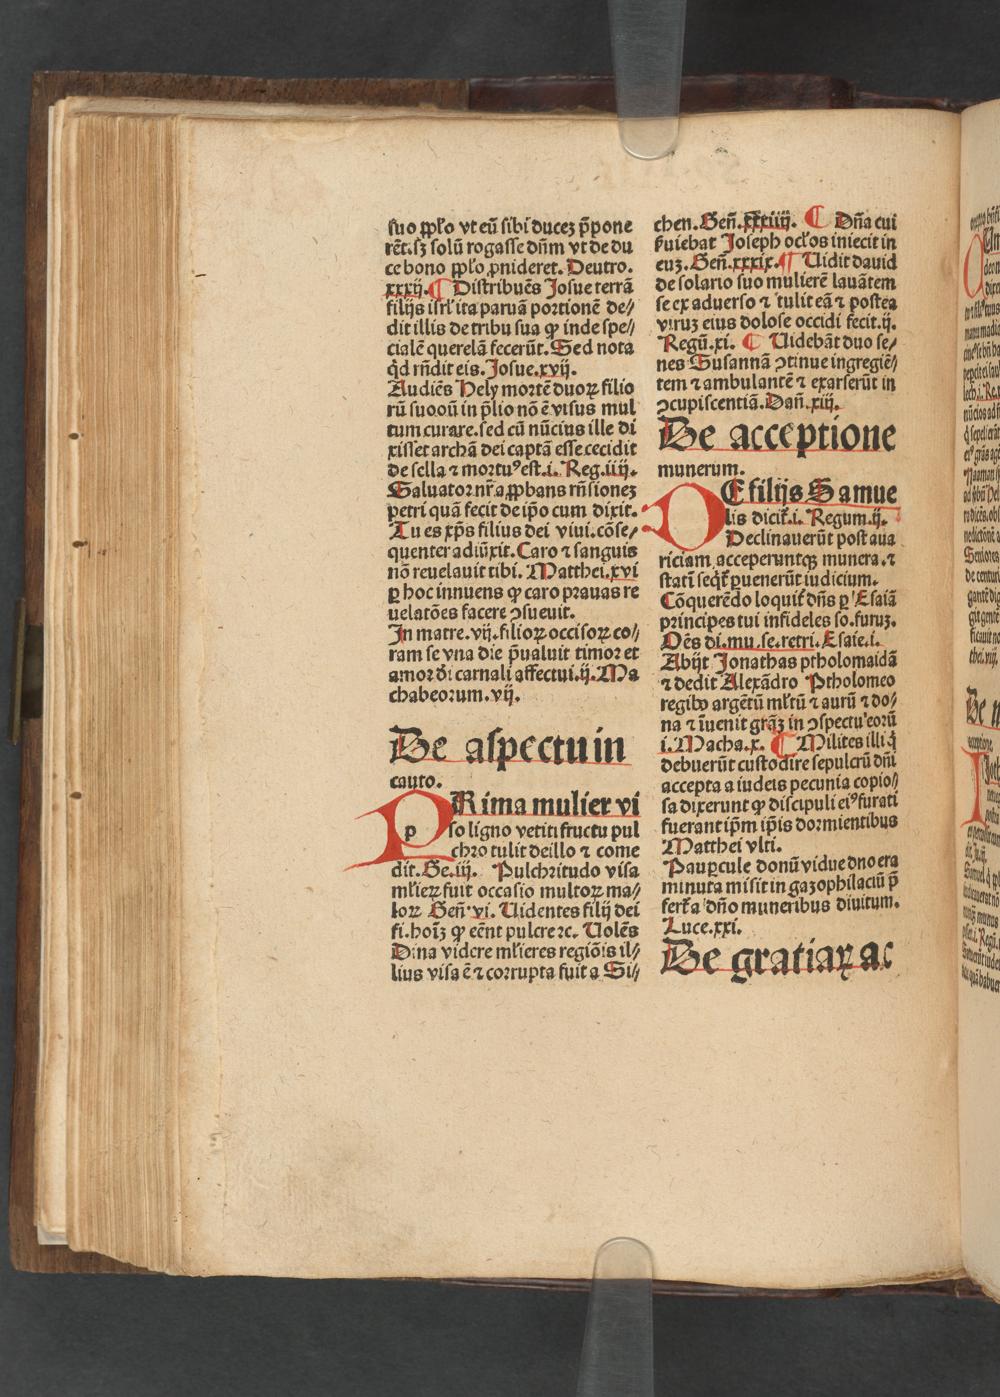 suo ppl̃o vt eũ sibi ducez p̄pone
rēt.sz solũ rogasse dñm vt de du
ce bono ppl̃o ꝓuideret. Deutro.
xxxij. ¶ Distribuēs Josue terrã
filijs isrl̃ ita paruã portionē de⸗
dit illis de tribu sua ꝙ inde spe⸗
cialē querelã fecerũt. Sed nota
q̇d rñdit eis. Josue.xvij.
Audiēs Hely mortē duoꝝ filio
rũ suoꝝ in p̄lio nõ ē visus mul
tum curare. sed cũ nũcius ille di
xisset archã dei captã esse cecidit
de sella ⁊ mortuꝰ est.i. Reg.iiij.
Saluator nr̃a ꝓbans rñsionez
petri quã fecit de ip̄o cum dixit.
Tu es xp̄s filius dei viui. cõse⸗
quenter adiũxit. Caro ⁊ sanguis
nõ reuelauit tibi. Matthei.xvi
ꝑ hoc innuens ꝙ caro prauas re
uelatões facere ꝯsueuit.
In matre.vij.filioꝝ occisoꝝ co⸗
ram se vna die p̄ualuit timor et
amor di carnali affectui.ij. Ma
chabeorum.vij.
De aspectu in
cauto.
PRima mulier vi
so ligno vetiti fructu pul
chro tulit de illo ⁊ come
dit. Ge.iij. Pulchritudo visa
ml̃ieꝝ fuit occasio multoꝝ ma⸗
loꝝ Geñ.vi. Uidentes filij dei
fi.hoĩz ꝙ eēnt pulcre ⁊c. Uolēs
Dina videre ml̃ieres regiõis il⸗
lius visa ē ⁊ corrupta fuit a Si⸗
chen. Geñ.xxxiiij. ¶ Dña cui
ẜuiebat Joseph ocl̃os iniecit in
euz. Geñ.xxxix. ¶ Uidit dauid
de solario suo mulierē lauãtem
se ex aduerso ⁊ tulit eã ⁊ postea
viruz eius dolose occidi fecit.ij.
Regũ.xi. ¶ Uidebãt duo se⸗
nes Susannã ꝯtinue ingregiē⸗
tem ⁊ ambulantē ⁊ exarserũt in
ꝯcupiscentiã. Dañ.xiij.
De acceptione
munerum.
DE filijs Samue
lis dicit̃.i. Regum.ij.
Declinauerũt post aua
riciam acceperuntqꝫ munera.⁊
statĩ seq̇t̃ ꝑuenerũt iudicium.
Cõquerēdo loquit̃ dñs ꝑ Esaiã
principes tui infideles so.furuz.
Oēs di.mu.se.retri. Esaie.i.
Abijt Jonathas ptholomaidã
⁊ dedit Alexãdro Ptholomeo
regibꝰ argētũ ml̃tũ ⁊ aurũ ⁊ do⸗
na ⁊ ĩuenit gr̃az in ꝯspectu eorũ
i. Macha.x. ¶ Milites illi q̇
debuerũt custodire sepulcrũ dñi
accepta a iudeis pecunia copio⸗
sa dixerunt ꝙ discipuli eiꝰ furati
fuerant ip̄m ip̄is dormientibus
Matthei vlti.
Pauꝑcule donũ vidue duo era
minuta misit in gazophilaciũ p̄
fert̃ a dño muneribus diuitum.
Luce.xxi.
De gratiaꝝ ac